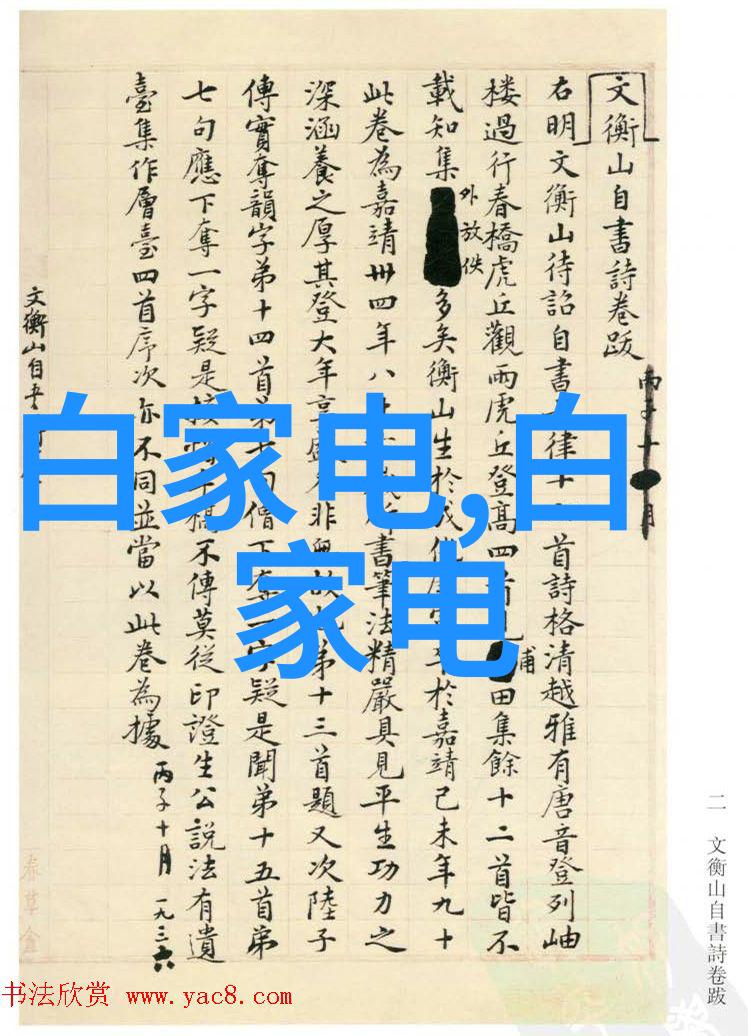 文衡山自書詩卷跋
丙子十月
右明文衡山待詔自書七律十 首詩格清越雅有唐音登列岫
楼過行春橋虎丘觀雨虎丘登高四首 甫田集餘十二首皆不
載知集外放佚多矣衡山生於成化 於嘉靖己未年九十
此卷為嘉靖卅四年八十 書筆法精嚴具見平生功力之
深涵養之厚其登大年享 非無故 弟十三首題又次陸子
傳實奪韻字弟十四首弟七句僧下奪一字疑是聞弟十五首弟
七句應下奪一字疑是 不傳莫從印證生公說法有遺
臺集作層臺四首序次亦不同並當以此卷為據
丙子十月 一九三六
文衡山自書
白家电,白
家电
二 文衡山自書詩卷跋
书法欣赏 www.yac8.com